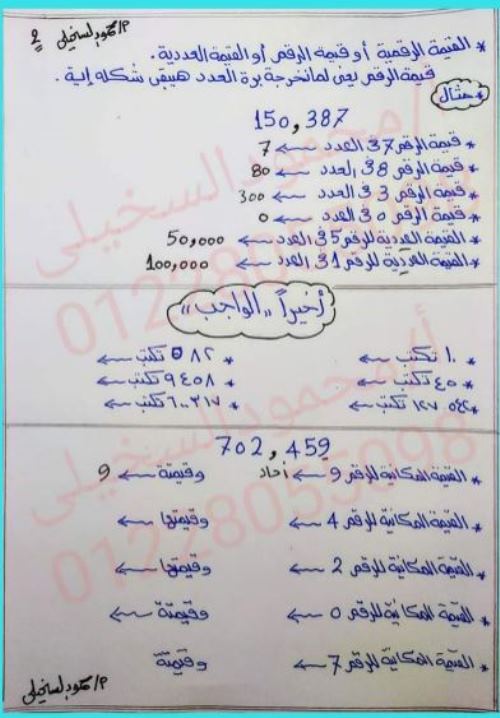 م/محمود السخيلي 2
* القيمة الرقمية أو قيمة الرقم أو القيمة العددية.
قيمة الرقم يعني لما نخرجة برة العدد هيبقى شكله إية.
* مثال
150,387
* قيمة الرقم 7 في العدد ← 7
* قيمة الرقم 8 في العدد ← 80
* قيمة الرقم 3 في العدد ← 300
* قيمة الرقم 0 في العدد ← 0
* القيمة العددية للرقم 5 في العدد ← 50,000
* القيمة العددية للرقم 1 في العدد ← 100,000
أخيراً "الواجب"
* ١٠ تكتب ← * ٥٨٢ تكتب ←
* ٤٥ تكتب ← * ٩٤٥٨ تكتب ←
* ١٢٧٠٥٤٢ تكتب ← * ٦٠٠٣١٧ تكتب ←
702,459
* القيمة المكانية للرقم 9 ← أحاد وقيمتة ← 9
* القيمة المكانية للرقم 4 ← وقيمتها ←
* القيمة المكانية للرقم 2 ← وقيمتها ←
* القيمة المكانية للرقم 0 ← وقيمتة ←
* القيمة المكانية للرقم 7 ← وقيمتة
م/محمود السخيلي
أ/محمود السخيلي
01228055098
أ/محمود السخيلي
01228055098